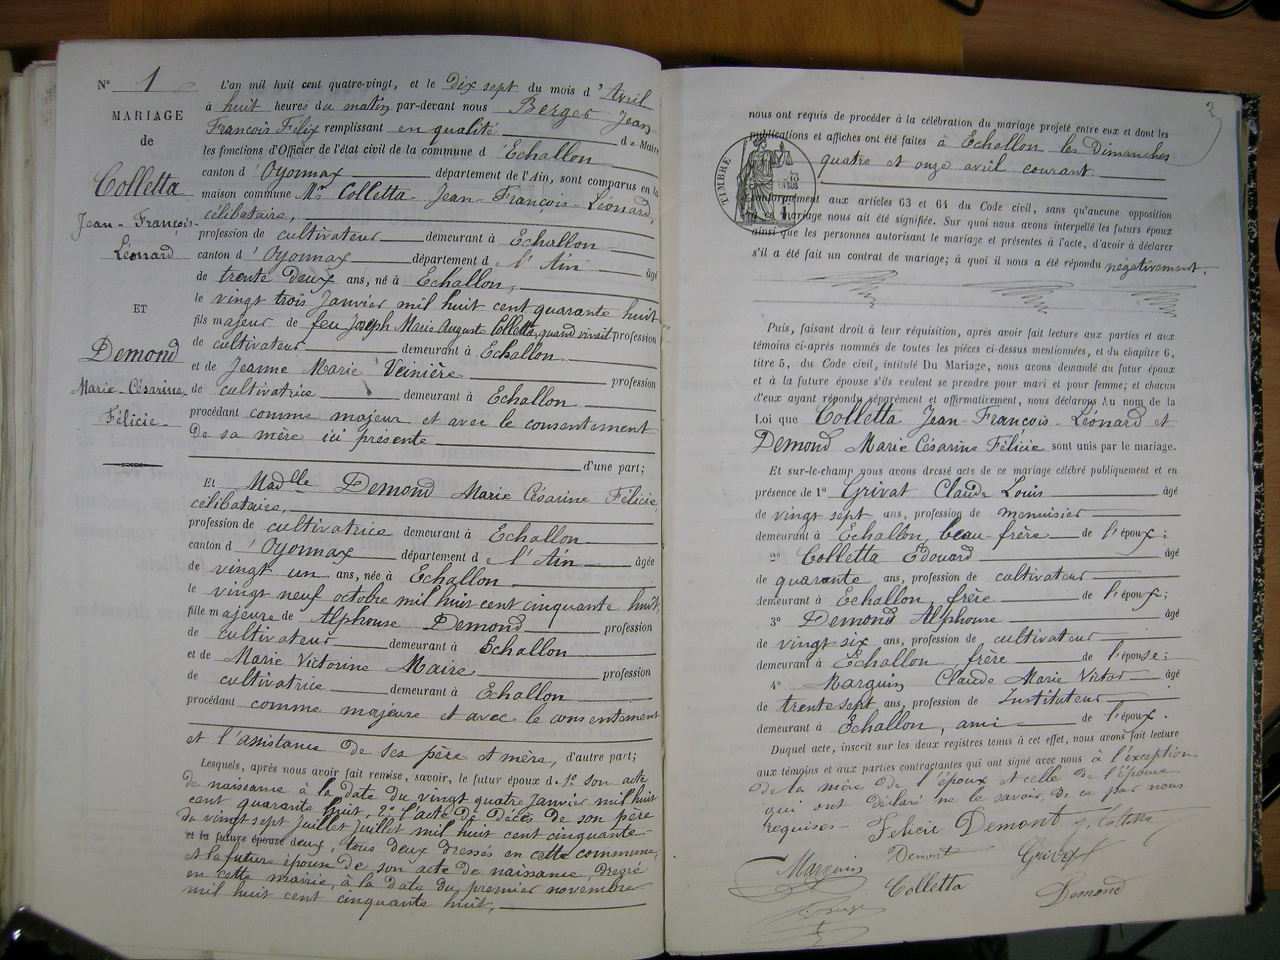 N° 1
MARIAGE
de
Colletta
Jean-François-
Léonard
ET
Demond
Marie-Césarine
Félicie
L'an mil huit cent quatre-vingt, et le Dix sept du mois d'Avril
à huit heures du matin par-devant nous Berger Jean
François Félix remplissant en qualité de Maire
les fonctions d'Officier de l'état civil de la commune d'Echallon
canton d'Oyonnax département de l'Ain, sont comparus en la
maison commune Mr Colletta Jean-François-Léonard,
célibataire,
profession de cultivateur demeurant à Echallon
canton d'Oyonnax département d l'Ain âgé
de trente deux ans, né à Echallon,
le vingt trois Janvier mil huit cent quarante huit
fils majeur de feu Joseph Marie Auguste Colletta, quand vivait profession
de cultivateur demeurant à Echallon
et de Jeanne Marie profession
de cultivatrice demeurant à Echallon
procédant comme majeur et avec le consentement
De sa mère ici présente
d'une part;
Et Madlle Demond Marie Césarine Félicie,
célibataire,
profession de cultivatrice demeurant à Echallon
canton d'Oyonnax département d l'Ain âgée
de vingt un ans, née à Echallon
le vingt neuf octobre mil huit cent cinquante huit,
fille majeure de Alphonse Demond profession
de cultivateur demeurant à Echallon
et de Marie Victorine Maire profession
de cultivatrice demeurant à Echallon
procédant comme majeure et avec le consentement
et l'assistance de ses père et mère, d'autre part;
Lesquels, après nous avoir fait remise, savoir, le futur époux d 1° son acte
de naissance à la date du vingt quatre Janvier mil huit
cent quarante huit, 2° l'acte de Décès de son père
du vingt sept Juillet Juillet mil huit cent cinquante
et la future épouse deux, tous deux dressés en cette commune,
et la future épouse de son acte de naissance, dressé
en cette mairie, à la date du premier novembre
mil huit cent cinquante huit,
3
nous ont requis de procéder à la célébration du mariage projeté entre eux et dont les
publications et affiches ont été faites à Echallon les Dimanches
quatre et onze avril courant
TIMBRE
Conformément aux articles 63 et 64 du Code civil, sans qu'aucune opposition
au mariage nous ait été signifiée. Sur quoi nous avons interpellé les futurs époux
ainsi que les personnes autorisant le mariage et présentes à l'acte, d'avoir à déclarer
s'il a été fait un contrat de mariage; à quoi il nous a été répondu négativement.
Puis, faisant droit à leur réquisition, après avoir fait lecture aux parties et aux
témoins ci-après nommés de toutes les pièces ci-dessus mentionnées, et du chapitre 6,
titre 5, du Code civil, intitulé Du Mariage, nous avons demandé au futur époux
et à la future épouse s'ils veulent se prendre pour mari et pour femme; et chacun
d'eux ayant répondu séparément et affirmativement, nous déclarons Au nom de la
Loi que Colletta Jean-François-Léonard et
Demond Marie Césarine Félicie sont unis par le mariage.
Et sur-le-champ nous avons dressé acte de ce mariage célébré publiquement et en
présence de 1° Grivat Claude Louis âgé
de vingt sept ans, profession de menuisier
demeurant à Echallon, beau-frère de l'époux;
2° Colletta Edouard âgé
de quarante ans, profession de cultivateur
demeurant à Echallon, frère de l'époux;
3° Demond Alphonse âgé
de vingt six ans, profession de cultivateur
demeurant à Echallon frère de l'épouse;
4° Marquin Claude Marie Victor âgé
de trente sept ans, profession de Instituteur
demeurant à Echallon, ami de l'époux.
Duquel acte, inscrit sur les deux registres tenus à cet effet, nous avons fait lecture
aux témoins et aux parties contractantes qui ont signé avec nous à l'exception
de la mère de l'époux et celle de l'épouse
qui ont déclaré ne le savoir, de ce par nous
requises. Felicie Demont J. Colletta
Marquin Demont Grivat
Colletta Demond